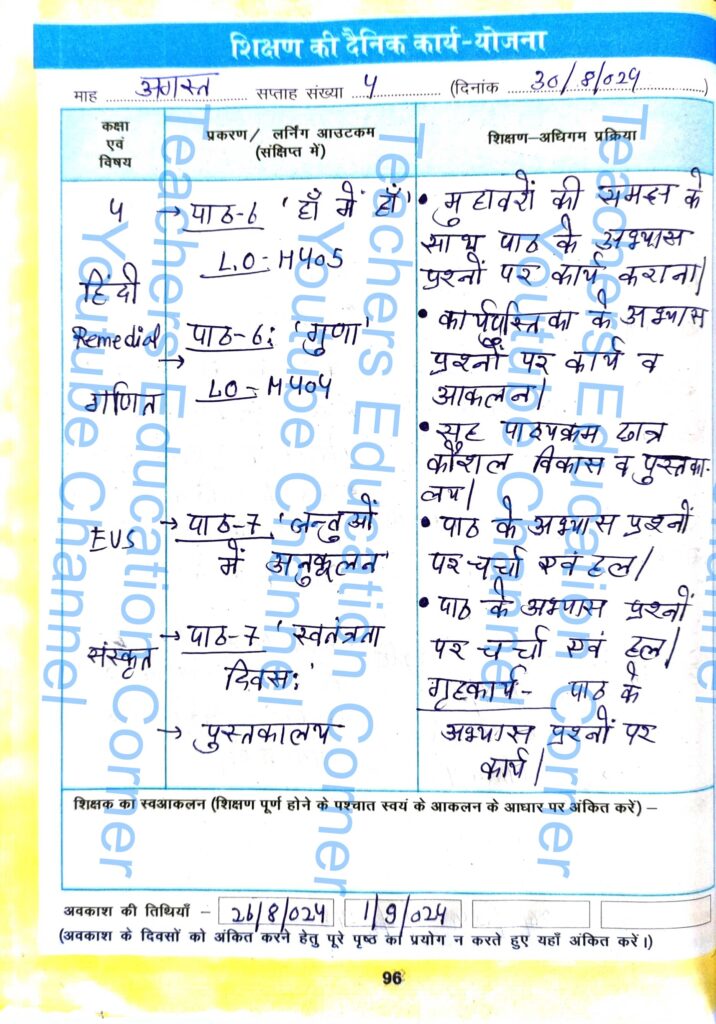 शिक्षण की दैनिक कार्य-योजना
माह अगस्त सप्ताह संख्या 4 (दिनांक 30/8/024)
कक्षा एवं विषय
प्रकरण/ लर्निंग आउटकम (संक्षिप्त में)
शिक्षण-अधिगम प्रक्रिया
4
हिंदी
Remedial
गणित
EVS
संस्कृत
→ पाठ-6 'हाँ में हाँ'
L.O- H405
→ पाठ-6: 'गुणा'
LO- M404
→ पाठ-7 'जन्तुओं
में अनुकूलन'
→ पाठ-7 'स्वतंत्रता
दिवस:'
→ पुस्तकालय
• मुहावरों की समझ के
साथ पाठ के अभ्यास
प्रश्नों पर कार्य कराना।
• कार्यपुस्तिका के अभ्यास
प्रश्नों पर कार्य व
आकलन।
• सह पाठ्यक्रम छात्र
कौशल विकास व पुस्तका-
लय।
• पाठ के अभ्यास प्रश्नों
पर चर्चा एवं हल।
• पाठ के अभ्यास प्रश्नों
पर चर्चा एवं हल।
गृहकार्य- पाठ के
अभ्यास प्रश्नों पर
कार्य।
शिक्षक का स्वआकलन (शिक्षण पूर्ण होने के पश्चात स्वयं के आकलन के आधार पर अंकित करें) –
अवकाश की तिथियाँ – 26/8/024 1/9/024
(अवकाश के दिवसों को अंकित करने हेतु पूरे पृष्ठ का प्रयोग न करते हुए यहाँ अंकित करें।)
96
Teachers Education Corner
Youtube Channel
Teachers Education Corner
Youtube Channel
Teachers Education Corner
Youtube Channel